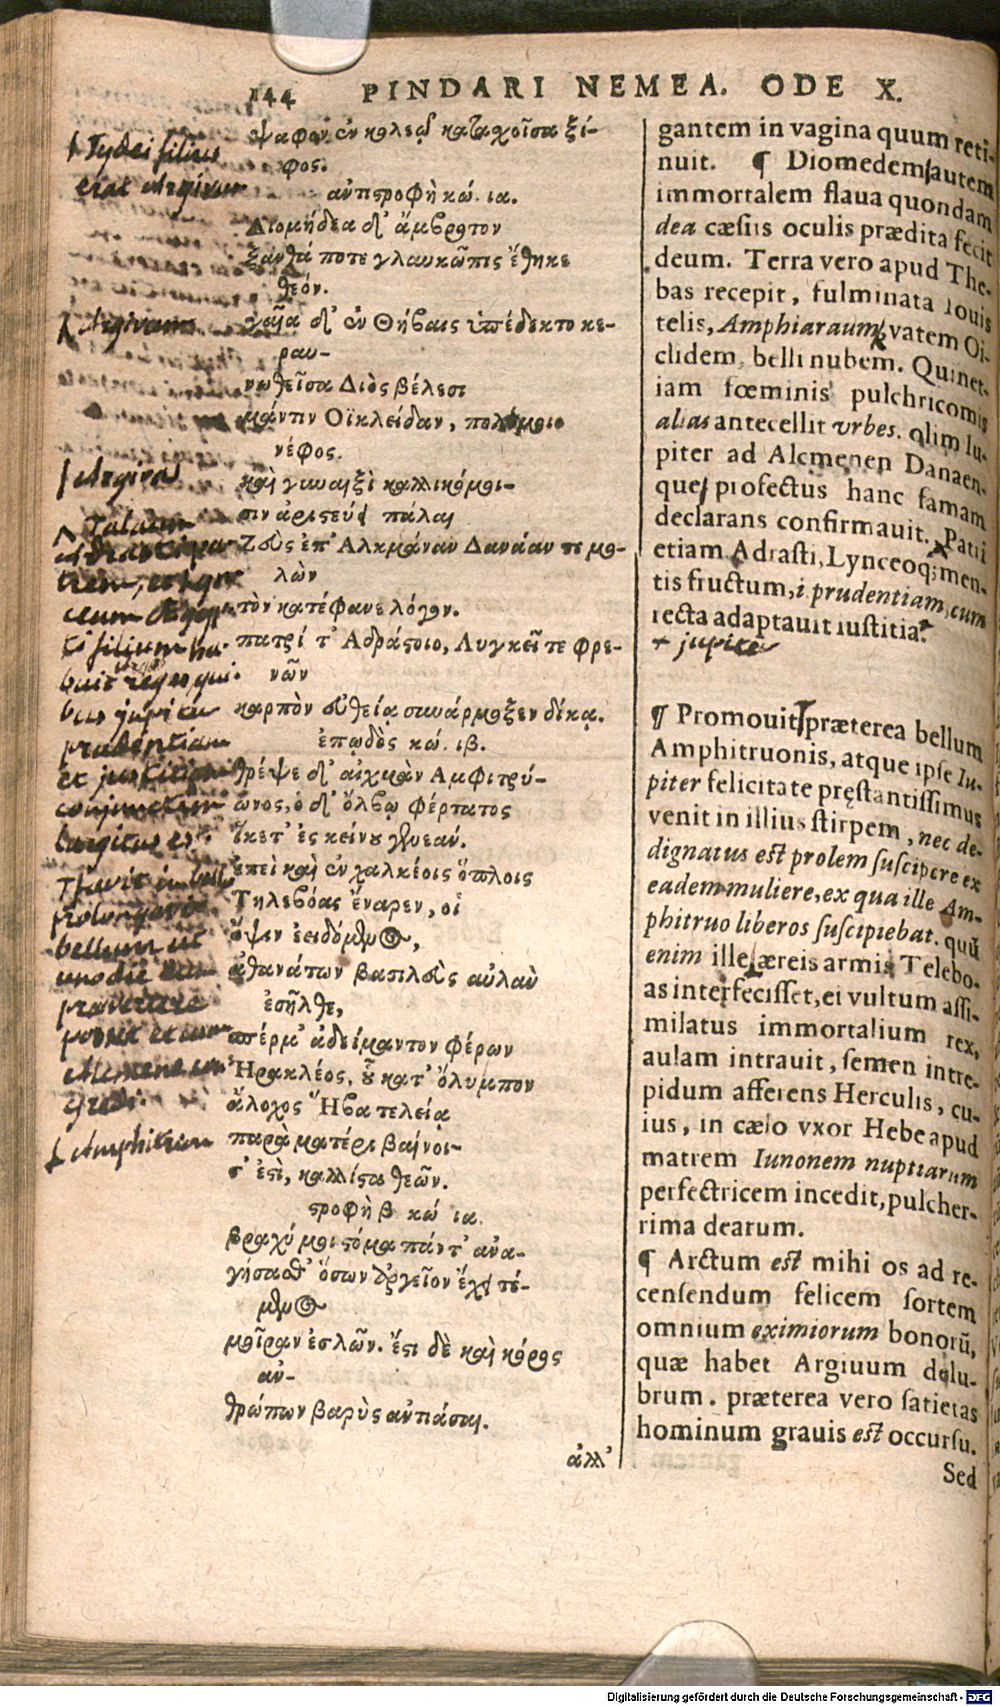 144 PINDARI NEMEA. ODE X.
Tydei filius
erat Argivum
Argivam
Argiva
Amphitruon
ψαφον ἐν κολεῷ κατασχοῖσα ξί-
φος.
ἀντιστροφὴ κώ. ια.
Διομήδεα δ' ἄμβροτον
ξανθά ποτε γλαυκῶπις ἔθηκε
θεόν.
γαῖα δ' ἐν Θήβαις ὑπέδεκτο κε-
ραυ-
νωθεῖσα Διὸς βέλεσι
μάντιν Οϊκλείδαν, πολέμοιο
νέφος.
καὶ γυναιξὶ καλλικόμοι-
σιν ἀριστεύει πάλαι
Ζεὺς ἐπ' Αλκμάναν Δανάαν τε μο-
λὼν
τὸν κατέφανε λόγον.
πατρί τ' Αδράστοιο, Λυγκεῖ τε φρε-
νῶν
καρπὸν εὐθείᾳ συνάρμοξεν δίκᾳ.
ἐπῳδὸς κώ. ιβ.
θρέψε δ' αἰχμὰν Αμφιτρύ-
ωνος, ὁ δ' ὄλβῳ φέρτατος
ἵκετ' ἐς κείνου γενεάν.
ἐπεὶ καὶ ἐν χαλκέοις ὅπλοις
Τηλεβόας ἔναρεν, οἱ
ὄψιν ἐειδόμενος,
ἀθανάτων βασιλεὺς αὐλὰν
ἐσῆλθε,
σπέρμ' ἀδείμαντον φέρων
Ἡρακλέος, οὗ κατ' ὄλυμπον
ἄλοχος Ἥβα τελείᾳ
παρὰ ματέρι βαίνοι-
σ' ἐστὶ, καλλίστα θεῶν.
στροφὴ β κώ ια.
βραχύ μοι στόμα πάντ' ἀνα-
γήσασθ' ὅσων Ἀργεῖον ἔχει τέ-
μενος
μοῖραν ἐσλῶν. ἔστι δὲ καὶ κόρος
ἀν-
θρώπων βαρὺς ἀντιάσαι.
ἀλλ'
gantem in vagina quum reti-
nuit. ¶ Diomedem autem
immortalem flaua quondam
dea cæsiis oculis prædita fecit
deum. Terra vero apud The-
bas recepit, fulminata Iouis
telis, Amphiaraum vatem Oi-
clidem, belli nubem. Quinet-
iam fœminis pulchricomis
alias antecellit vrbes. olim Iu-
piter ad Alcmenen Danaen-
que profectus hanc famam
declarans confirmauit. Patri
etiam Adrasti, Lynceoq; men-
tis fructum, i prudentiam, cum
recta adaptauit iustitia.
+ jupiter
¶ Promouit præterea bellum
Amphitruonis, atque ipse Iu-
piter felicitate pręstantissimus
venit in illius stirpem, nec de-
dignatus est prolem suscipere ex
eadem muliere, ex qua ille Am-
phitruo liberos suscipiebat. quū
enim ille æreis armis Telebo-
as interfecisset, ei vultum assi-
milatus immortalium rex,
aulam intrauit, semen intre-
pidum afferens Herculis, cu-
ius, in cælo vxor Hebe apud
matrem Iunonem nuptiarum
perfectricem incedit, pulcher-
rima dearum.
¶ Arctum est mihi os ad re-
censendum felicem sortem
omnium eximiorum bonorū,
quæ habet Argiuum delu-
brum. præterea vero satietas
hominum grauis est occursu.
Sed
Digitalisierung gefördert durch die Deutsche Forschungsgemeinschaft - DFG